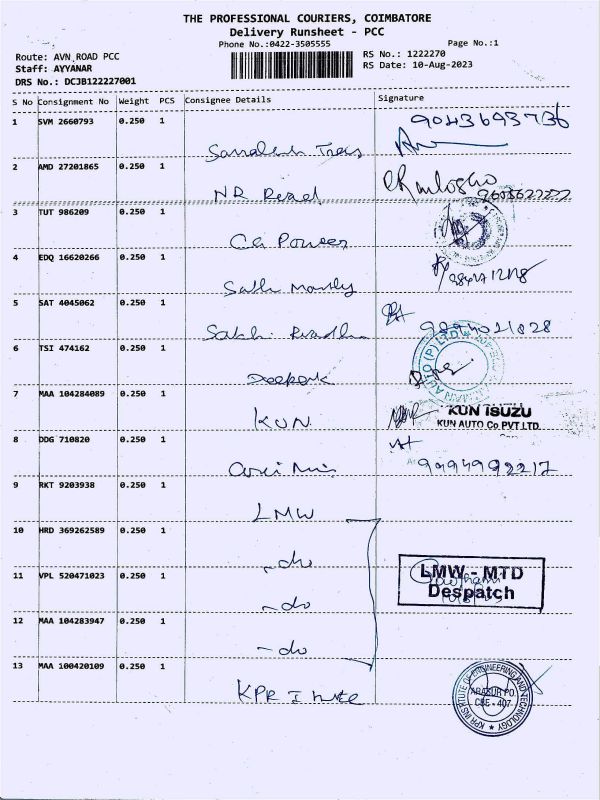 THE PROFESSIONAL COURIERS, COIMBATORE
Delivery Runsheet - PCC
Phone No.:0422-3505555
Page No.:1
Route: AVN ROAD PCC
RS No.: 1222270
Staff: AYYANAR
RS Date: 10-Aug-2023
DRS No.: DCJB122227001
S No Consignment No Weight PCS Consignee Details Signature
1 SVM 2660793 0.250 1
9043693736
2 AMD 27201865 0.250 1
NR Road
3 TUT 986209 0.250 1
CG Power
4 EDQ 16620266 0.250 1
5 SAT 4045062 0.250 1
6 TSI 474162 0.250 1
AUTO (P) LTD
Deepak
7 MAA 104284089 0.250 1
KUN
KUN ISUZU
KUN AUTO Co PVT.LTD.
8 DDG 710820 0.250 1
9494992217
9 RKT 9203938 0.250 1
LMW
10 HRD 369262589 0.250 1
- do
11 VPL 520471023 0.250 1
LMW - MTD
Despatch
- do
12 MAA 104283947 0.250 1
- do
13 MAA 100420109 0.250 1
KPR
KPR INSTITUTE OF ENGINEERING AND TECHNOLOGY
ARASUR PO
CBE - 407